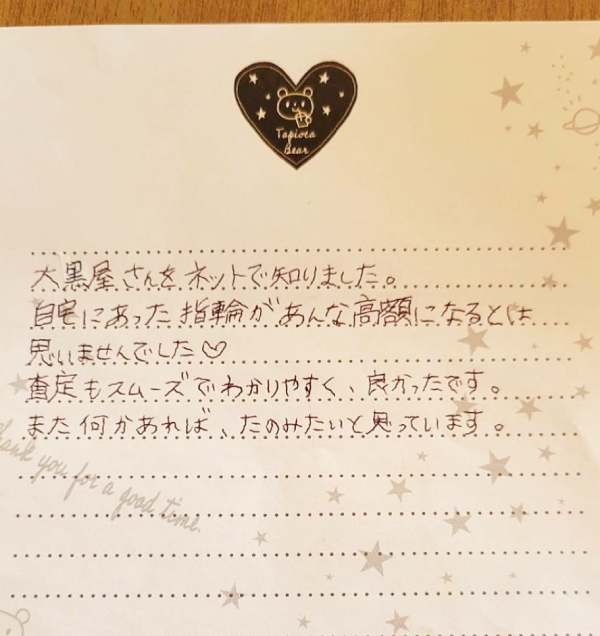 Tapioca
Bear
大黒屋さんをネットで知りました。
自宅にあった指輪があんな高額になるとは
思いませんでした♡
査定もスムーズでわかりやすく、良かったです。
また何かあれば、たのみたいと思っています。
Thank you for a good time.